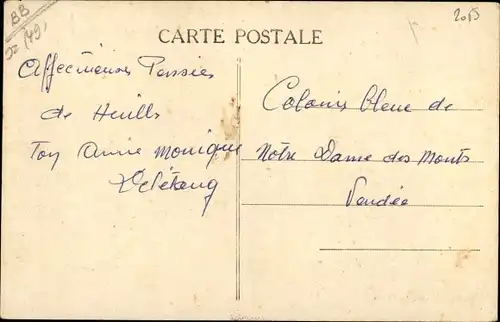 BB
(49)
2015
CARTE POSTALE
Affectueuses Pensées
de Heuills
Ton Amie Monique
Delétang
Colonie bleue de
Notre Dame des Monts
Vendée